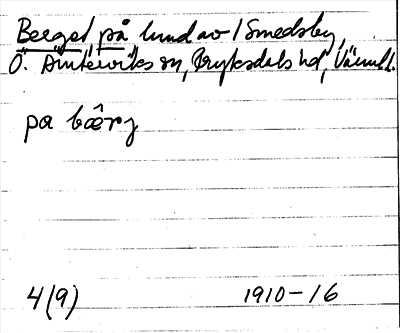 Berget på lund av 1 Smedsby,
Ö. Ämterviks sn, Fryksdals hd, Värml.
pa bærj
4(9) 1910-16